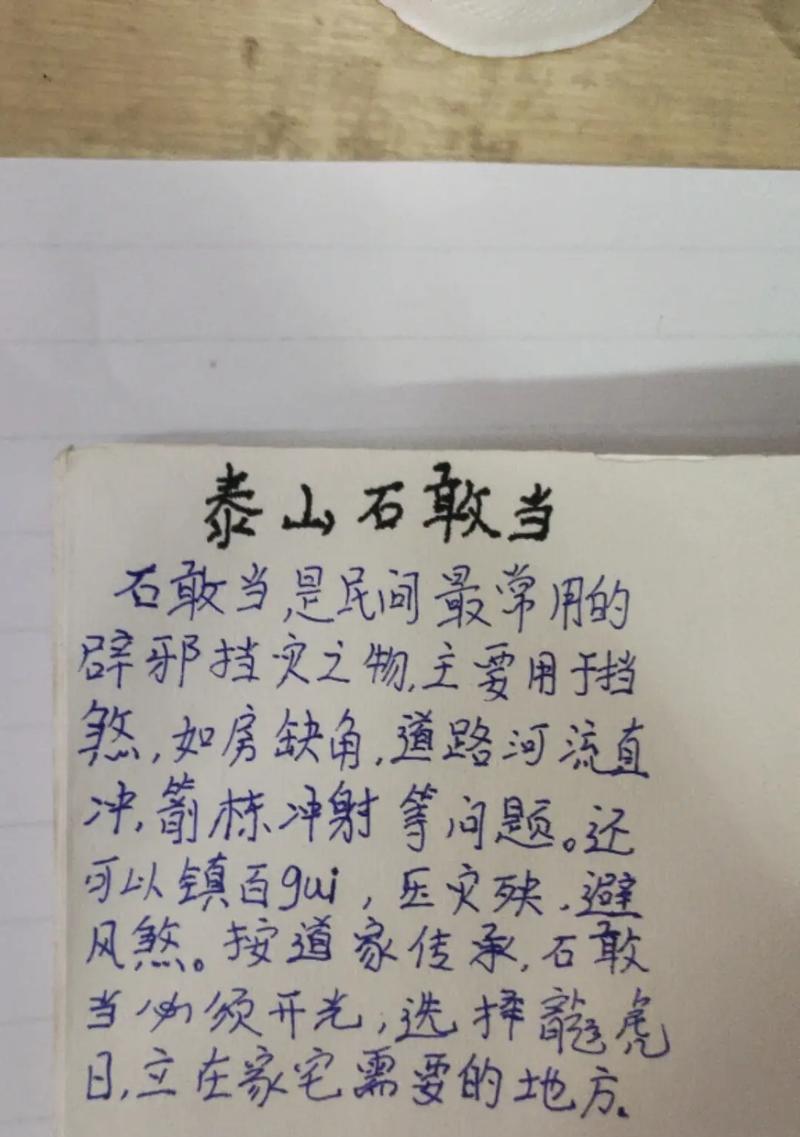 泰山石敢当
石敢当,是民间最常用的
辟邪挡灾之物,主要用于挡
煞,如房缺角,道路河流直
冲,箭栋冲射等问题。还
可以镇百gui,压灾殃,避
风煞。按道家传承,石敢
当必须开光,选择龍虎
日,立在家宅需要的地方.